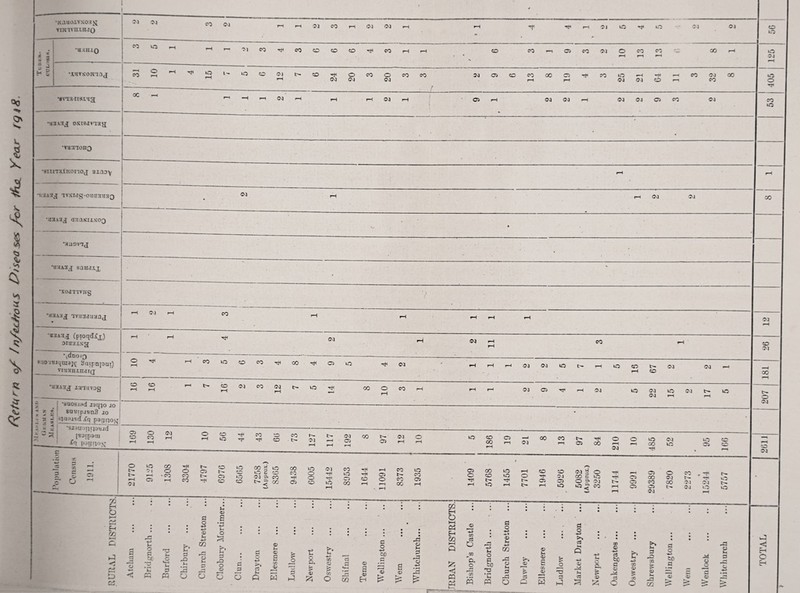 Return of Infectious Diseases for the Year 1918.
Population Census 1911.
MEASLES AND GERMAN MEASLES.
Notified by medical practitioners.
Notified by parents or guardians or other persons.
SCARLET FEVER.
DIPHTHERIA including Membranous Croup.
ENTERIC (Typhoid) FEVER.
PUERPERAL FEVER.
SMALLPOX.
TYPHUS FEVER.
PLAGUE.
CONTINUED FEVER.
CEREBRO-SPINAL FEVER.
ACUTE POLIOMYELITIS.
CHOLERA.
RELAPSING FEVER.
ERYSIPELAS.
TUBERCULOSIS.
PULMONARY.
OTHER.
OPHTHALMIA NEONATORUM.
RURAL DISTRICTS.
Atcham ... 21770 169 16 10 1 1 8 31 3 2
Bridgnorth ... 9125 130 16 4 2 1 10 5 2
Burford ... 1308 12 1 1 1 1
Chirbury ... 3304 1 1 4 3
Church Stretton ... 4797 10 7 3 1 15 1 2
Cleobury Mortimer... 6976 56 16 5 4 3 1 7 1
Clun ... 6565 44 2 6 1 5 2 1
Drayton ... 7258 (Approx.) 43 3 3 2 2 6 3 1
Ellesmere ... 8365 66 12 4 1 12 4 2
Ludlow ... 9438 73 7 8 1 7 3 3
Newport ... 6005 127 5 4 1 6 6 1
Oswestry ... 15442 117 14 9 1 24 6 2
Shifnal ... 8953 192 5 2 2 20 6 2
Teme ... 1644 8 1 3 4 1
Wellington ... 11091 97 10 4 20 3
Wem ... 8373 12 3 2 3 1
Whitchurch... 1935 10 1 1 1 3 1
URBAN DISTRICTS.
Bishop's Castle ... 1409 5 1 1 2
Bridgnorth ... 5768 186 1 1 2 1 9 9 6 1
Church Stretton ... 1455 19 1 11 1 6
Dawley ... 7701 21 2 2 1 3 3 4
Ellesmere ... 1946 8 9 2 2 8 1
Ludlow ... 5926 13 4 5 1 2 19 9 4
Market Drayton ... 5082 (Approx.) 97 1 7 1 4 3 1
Newport ... 3250 84 2 1 3 2 2
Oakengates ... 11744 210 5 3 2 15 10 5
Oswestry ... 9991 10 5 16 1 2 21 13 4
Shrewsbury ... 29389 485 22 67 2 9 64 13 5
Wellington ... 7820 52 15 2 1 3 11 6
Wem ... 2273 2 2 3
Wenlock ... 15244 95 7 2 32 8 2
Whitchurch ... 5757 166 5 1 8 1 2
TOTAL 2611 207 181 26 12 8 1 53 405 125 56